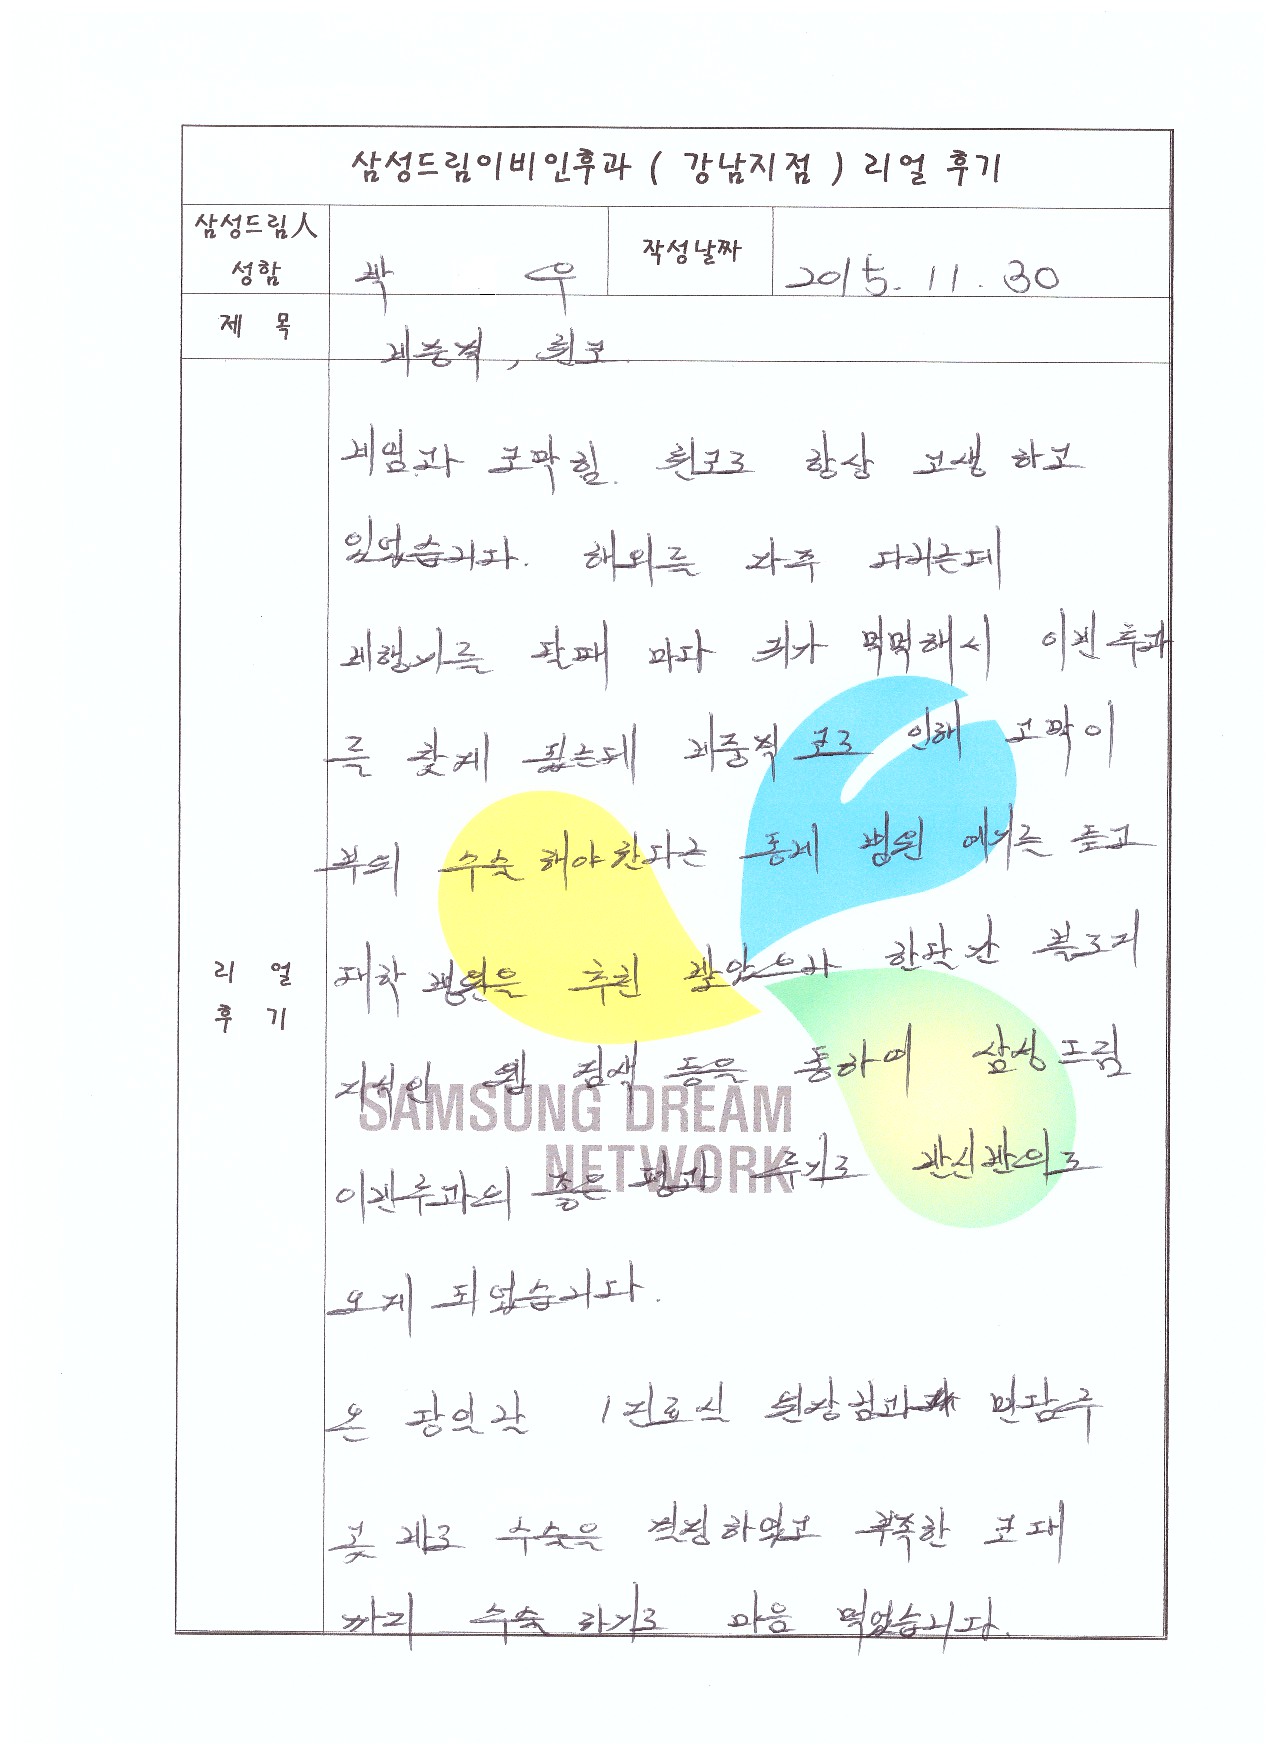 삼성드림이비인후과 ( 강남지점 ) 리얼 후기
삼성드림人
성함
박 우
작성날짜
2015. 11. 30
제 목
비중격, 휜코
리 얼
후 기
비염과 코막힘. 휜코로 항상 고생 하고
있었습니다. 해외를 자주 다니는데
비행기를 탈때 마다 귀가 먹먹해서 이빈후과
를 찾게 됬는데 비중격 코로 인해 고막이
부의 수술해야 한다는 동네 병원 얘기를 듣고
대학 병원을 추천 받았으나 한달간 블로그
지식인 웹 검색 등을 통하여 삼성드림
이빈후과의 좋은 평과 후기로 반신반의로
오게 되었습니다.
온 당일날 진료식 원장님과 면담후
곧 바로 수술을 결정하였고 부족한 코대
까지 수술 하기로 마음 먹었습니다.
SAMSUNG DREAM
NETWORK